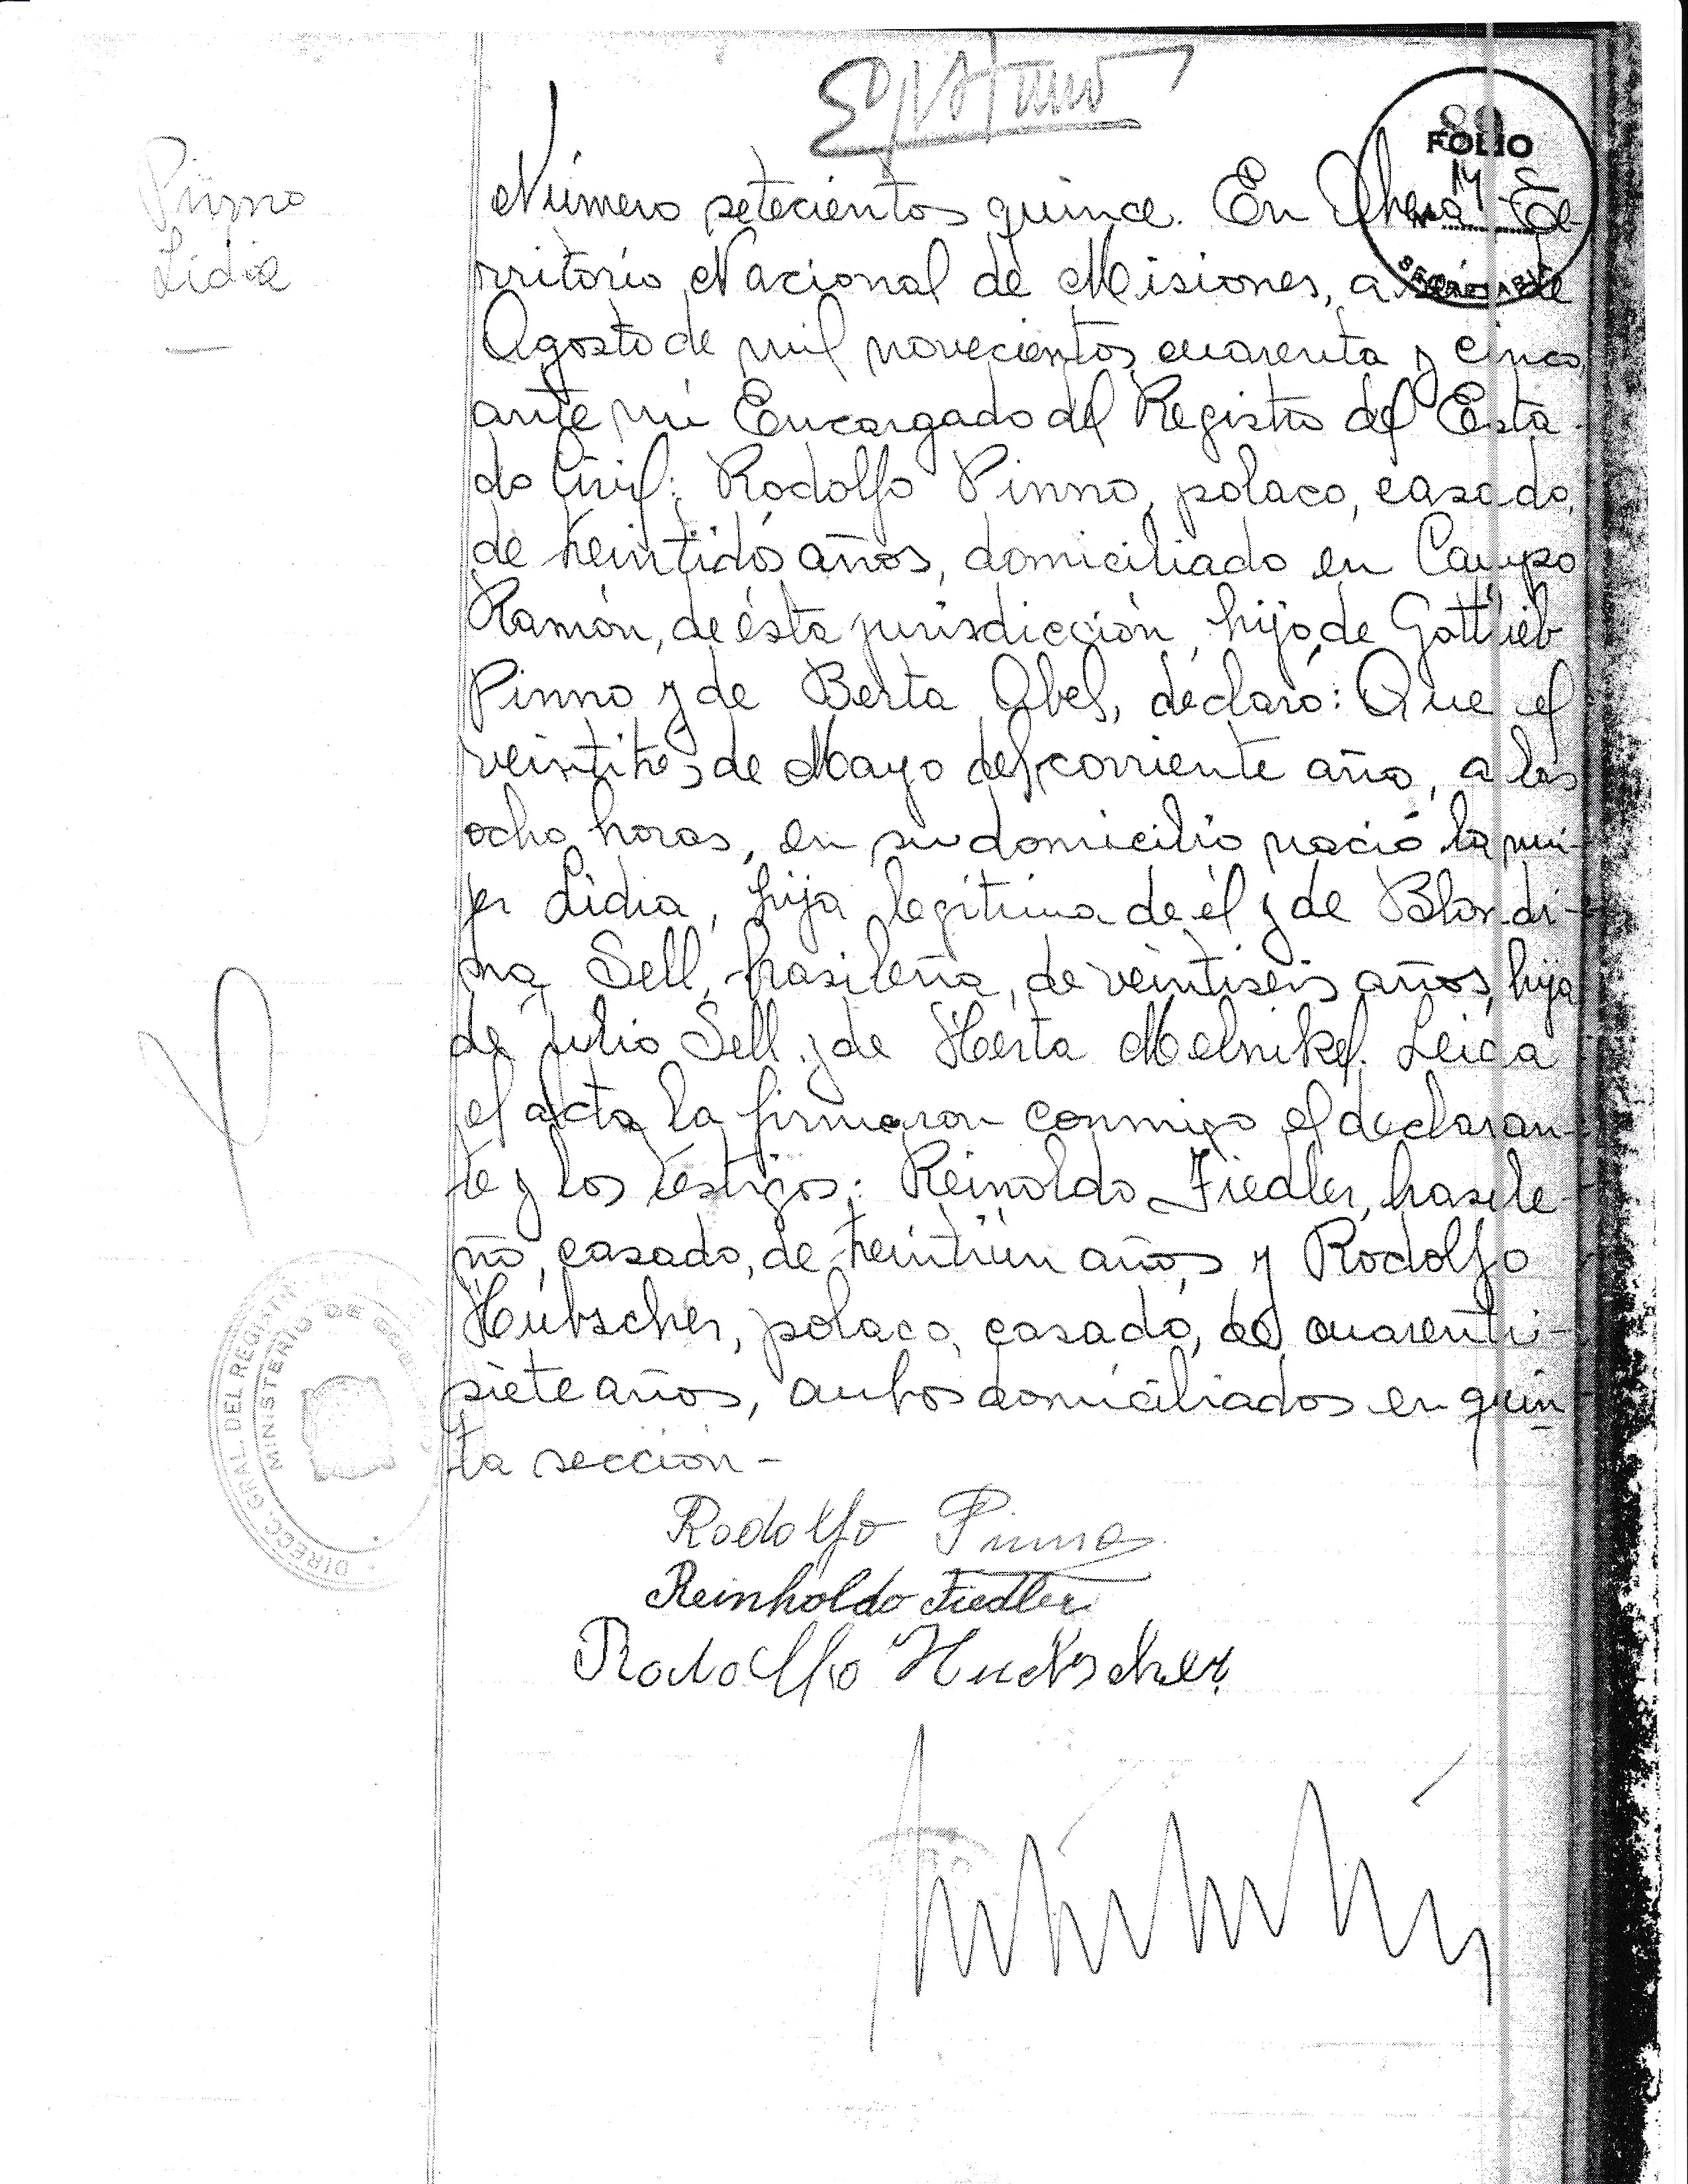 Pinno
Lidia
89
FOLIO
14
Número setecientos quince. En Oberá Te-
rritorio Nacional de Misiones, a seis de
Agosto de mil novecientos cuarenta y cinco,
ante mí Encargado del Registro del Esta-
do Civil: Rodolfo Pinno, polaco, casado,
de treintidós años, domiciliado en Campo
Ramón, de ésta jurisdicción, hijo de Gottlieb
Pinno y de Berta Abel, declaró: Que el
veintitres de Mayo del corriente año, a las
ocho horas, en su domicilio nació la mu-
jer Lidia, hija legítima de él y de Blondi-
na Sell, brasileña, de veintiseis años, hija
de Julio Sell y de Herta Melnikel. Leida
el acta la firmaron conmigo el declaran-
te y los testigos: Reinoldo Fiedler, brasile-
ño, casado, de treintiún años y Rodolfo
Hübscher, polaco, casado, de cuarenti-
siete años, ambos domiciliados en quin-
ta sección-
Rodolfo Pinno
Reinholdo Fiedler
Rodolfo Huebscher
SECRETARIA
DIRECC. GRAL. DEL REGISTRO
MINISTERIO DE GOB